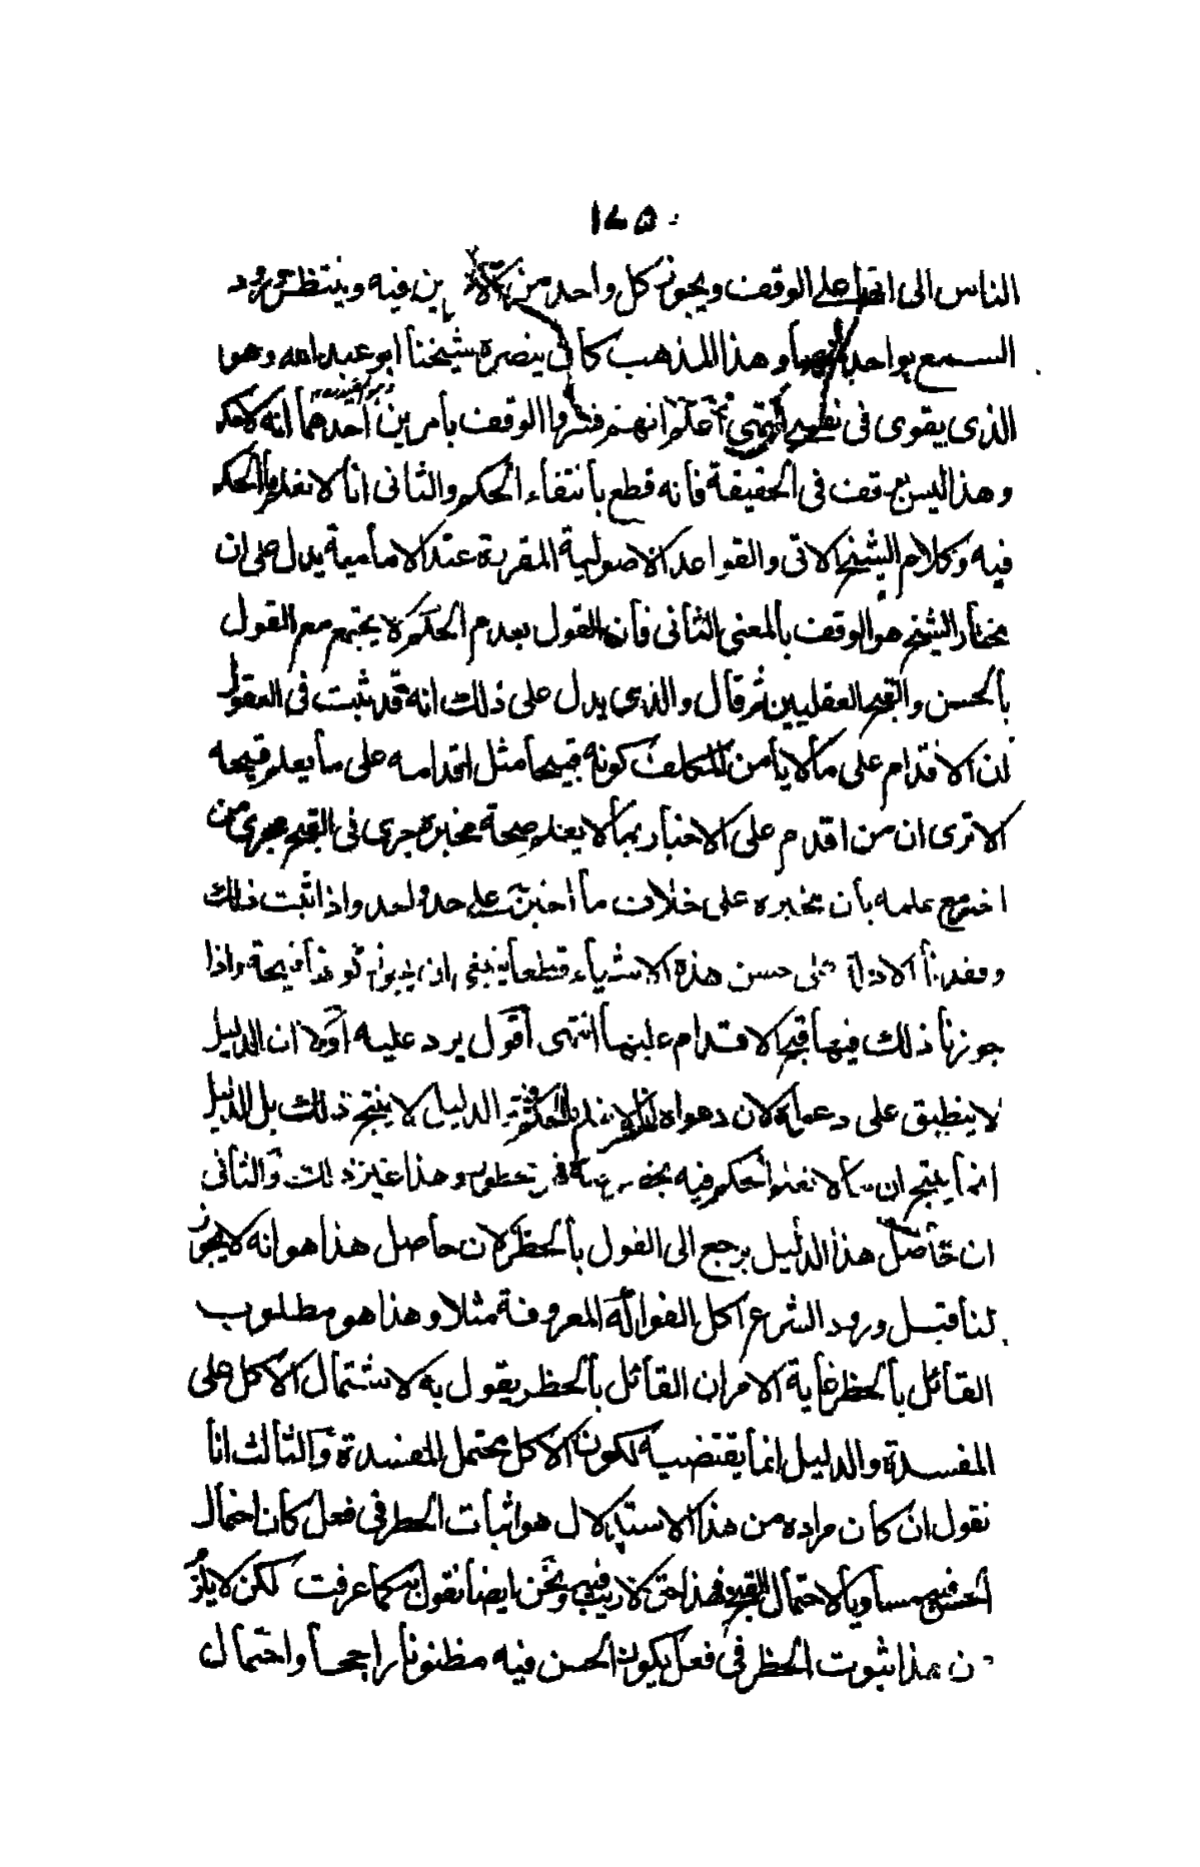 ١٨٥
الناس الى انها على الوقف ويجوز كل واحد من الامرين فيه وينتظر ورود
السمع بواحد منهما وهذا المذهب كان ينصره شيخنا ابو عبد الله وهو
الذى يقوى فى نفسى انتهى ثم اعلم انهم فسروا الوقف بأمرين احدهما انه لا حكم
وهذا ليس بوقف فى الحقيقة فأنه قطع بأنتفاء الحكم والثانى انا لا نعلم ما الحكم
فيه وكلام الشيخ الاتى والقواعد الاصولية المقررة عند الامامية يدل على ان
مختار الشيخ هو الوقف بالمعنى الثانى فأن القول بعدم الحكم لا يجتمع مع القول
بألحسن والقبح العقليين ثم قال والذى يدل على ذلك انه قد ثبت فى العقول
ان الاقدام على مألا يأمن المكلف كونه قبيحا مثل اقدامه على مأ يعلم قبحه
الا ترى ان من اقدم على الاخبار بمألا يعلم صحة مخبره جرى فى القبح مجرى من
اخبر مع علمه بأن مخبره على خلاف مأ اخبر به على حد واحد واذا ثبت ذلك
وفقدنأ الادلة على حسن هذه الاشيأء قطعأ ينبغى ان يجوز كونهأ قبيحة واذا
جوزنأ ذلك فيهأ قبح الاقدام عليهأ انتهى أقول يرد عليه اولا ان الدليل
لا ينطبق على دعوأه لان دعواه انا لا نعلم ما الحكم فيه الدليل لا ينتج ذلك بل الدليل
انمأ ينتج ان مألا نعلم الحكم فيه بخصوصه فهو محظور وهذا غير ذلك والثأنى
ان حأصل هذا الدليل يرجع الى القول بألحظر لان حأصل هذا هو انه لا يجوز
لنأ قبل ورود الشرع اكل الفواكه المعروفة مثلا وهذا هو مطلوب
القأئل بألحظر غأية الامر ان القأئل بألحظر يقول به لاشتمأل الاكل على
المفسدة والدليل انمأ يقتضيه لكون الاكل محتمل المفسدة والثألث انأ
نقول ان كأن مراده من هذا الاستدلال هو اثبأت الحظر فى فعل كأن احتمأل
الحسن فيه مسأويأ لاحتمأل القبح فهذا حق لا ريب فيه ونحن ايضأ نقول به كمأ عرفت لكن لا يلزم
من هذا ثبوت الحظر فى فعل يكون الحسن فيه مظنونأ راجحأ واحتمأل